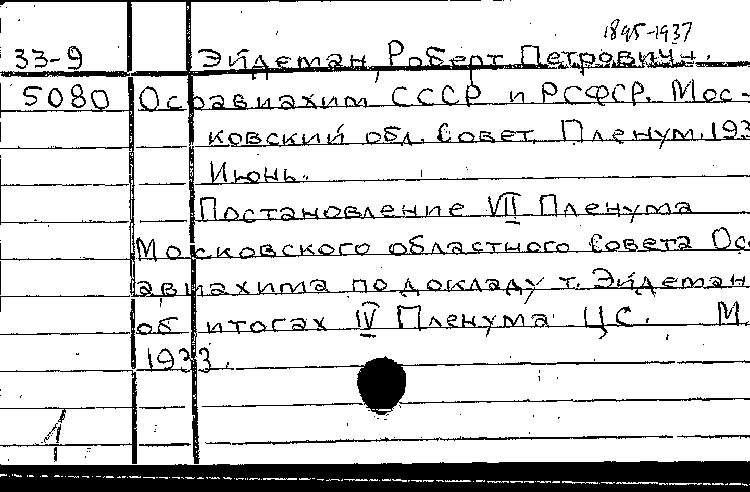 1895-1937
33-9 Эйдеман, Роберт Петрович.
5080 Осоавиахим СССР и РСФСР. Мос-
ковский обл. Совет. Пленум. 193
Июнь.
Постановление VII Пленума
Московского областного Совета Осо
авиахима по докладу т. Эйдеман
об итогах IV Пленума ЦС. М.
1933.
1